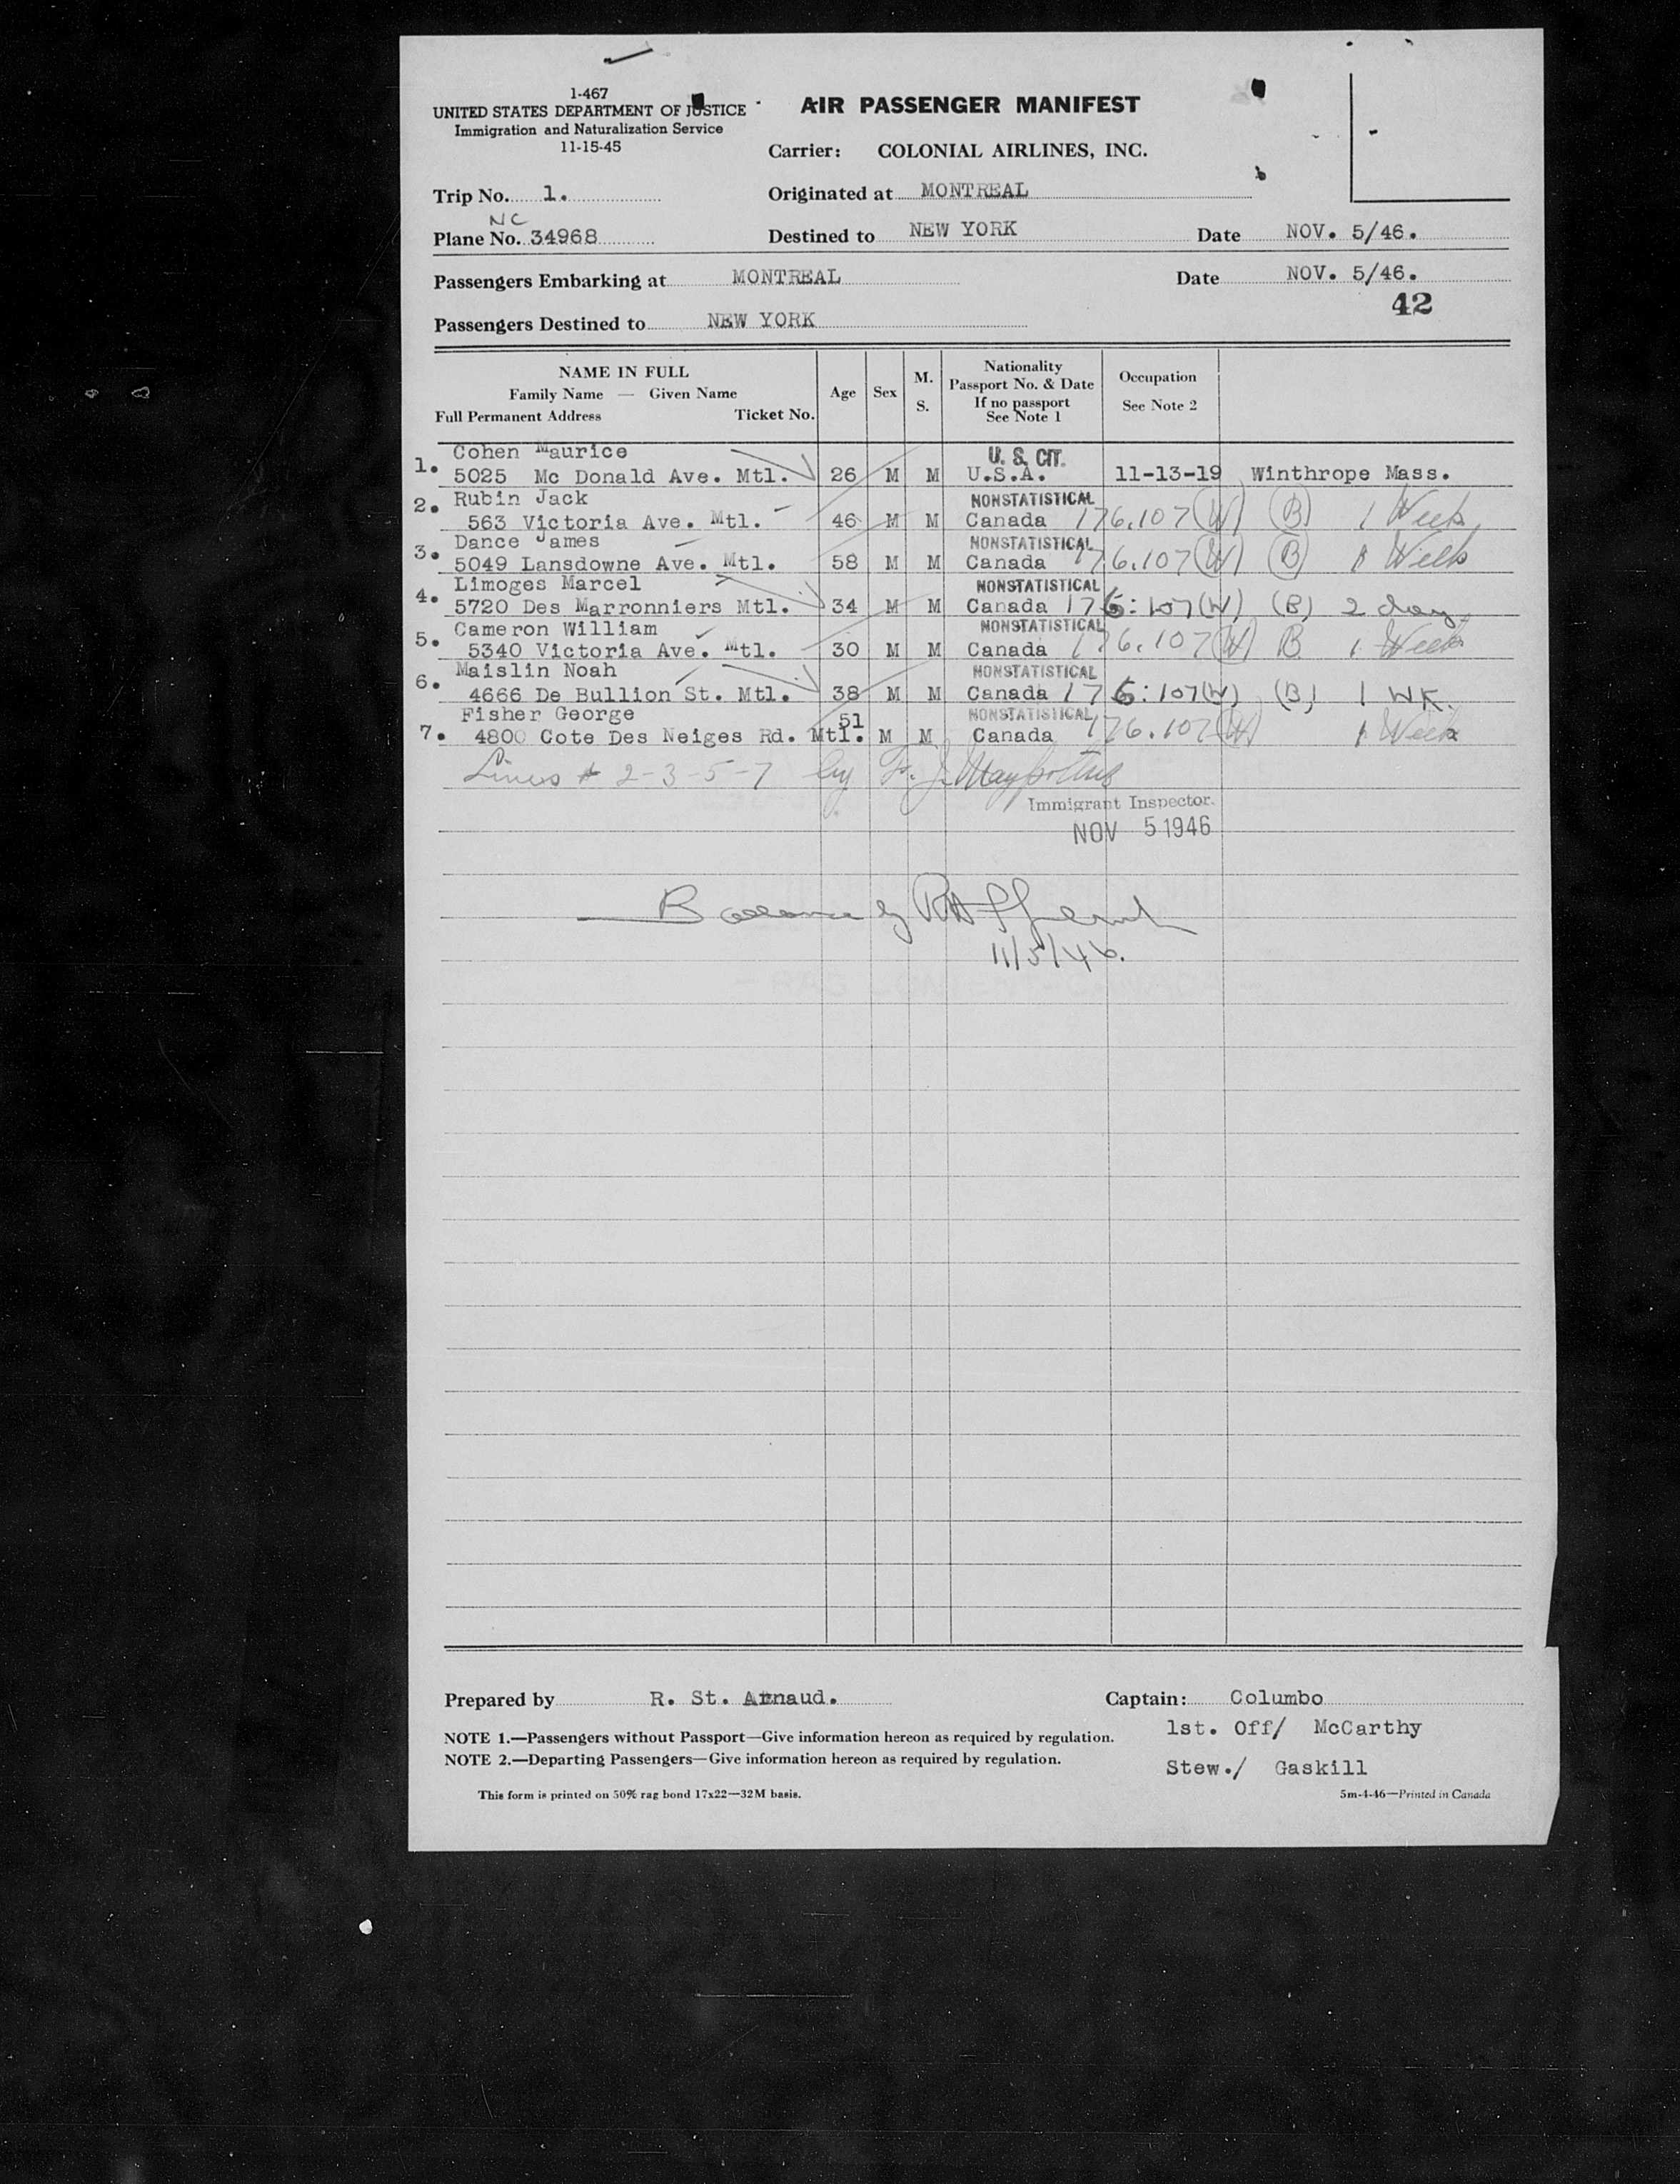 1-467
UNITED STATES DEPARTMENT OF JUSTICE
Immigration and Naturalization Service
11-15-45
AIR PASSENGER MANIFEST
Carrier: COLONIAL AIRLINES, INC.
Trip No. 1.
Originated at MONTREAL
NC
Plane No. 34968
Destined to NEW YORK
Date NOV. 5/46.
Passengers Embarking at MONTREAL
Date NOV. 5/46.
42
Passengers Destined to NEW YORK
NAME IN FULL
Family Name — Given Name
Full Permanent Address Ticket No.
Age
Sex
M.
S.
Nationality
Passport No. & Date
If no passport
See Note 1
Occupation
See Note 2
Cohen Maurice U. S. CIT.
1. 5025 Mc Donald Ave. Mtl. 26 M M U.S.A. 11-13-19 Winthrope Mass.
2. Rubin Jack NONSTATISTICAL
563 Victoria Ave. Mtl. 46 M M Canada 176.107 (W) (B) 1 Week
3. Dance James NONSTATISTICAL
5049 Lansdowne Ave. Mtl. 58 M M Canada 176.107 (W) (B) 1 Week
4. Limoges Marcel NONSTATISTICAL
5720 Des Marronniers Mtl. 34 M M Canada 176:107(W) (B) 2 day
5. Cameron William NONSTATISTICAL
5340 Victoria Ave. Mtl. 30 M M Canada 176.107 (W) B 1 Week
6. Maislin Noah NONSTATISTICAL
4666 De Bullion St. Mtl. 38 M M Canada 176:107(W) (B) 1 WK.
Fisher George 51 NONSTATISTICAL
7. 4800 Cote Des Neiges Rd. Mtl. M M Canada 176.107 (W) 1 Week
Lines # 2-3-5-7 by F. J.
Immigrant Inspector.
NOV 5 1946
Balance by
11/5/46.
Prepared by R. St. Arnaud.
Captain: Columbo
1st. Off/ McCarthy
Stew./ Gaskill
NOTE 1.—Passengers without Passport—Give information hereon as required by regulation.
NOTE 2.—Departing Passengers—Give information hereon as required by regulation.
This form is printed on 50% rag bond 17x22—32M basis.
5m-4-46—Printed in Canada